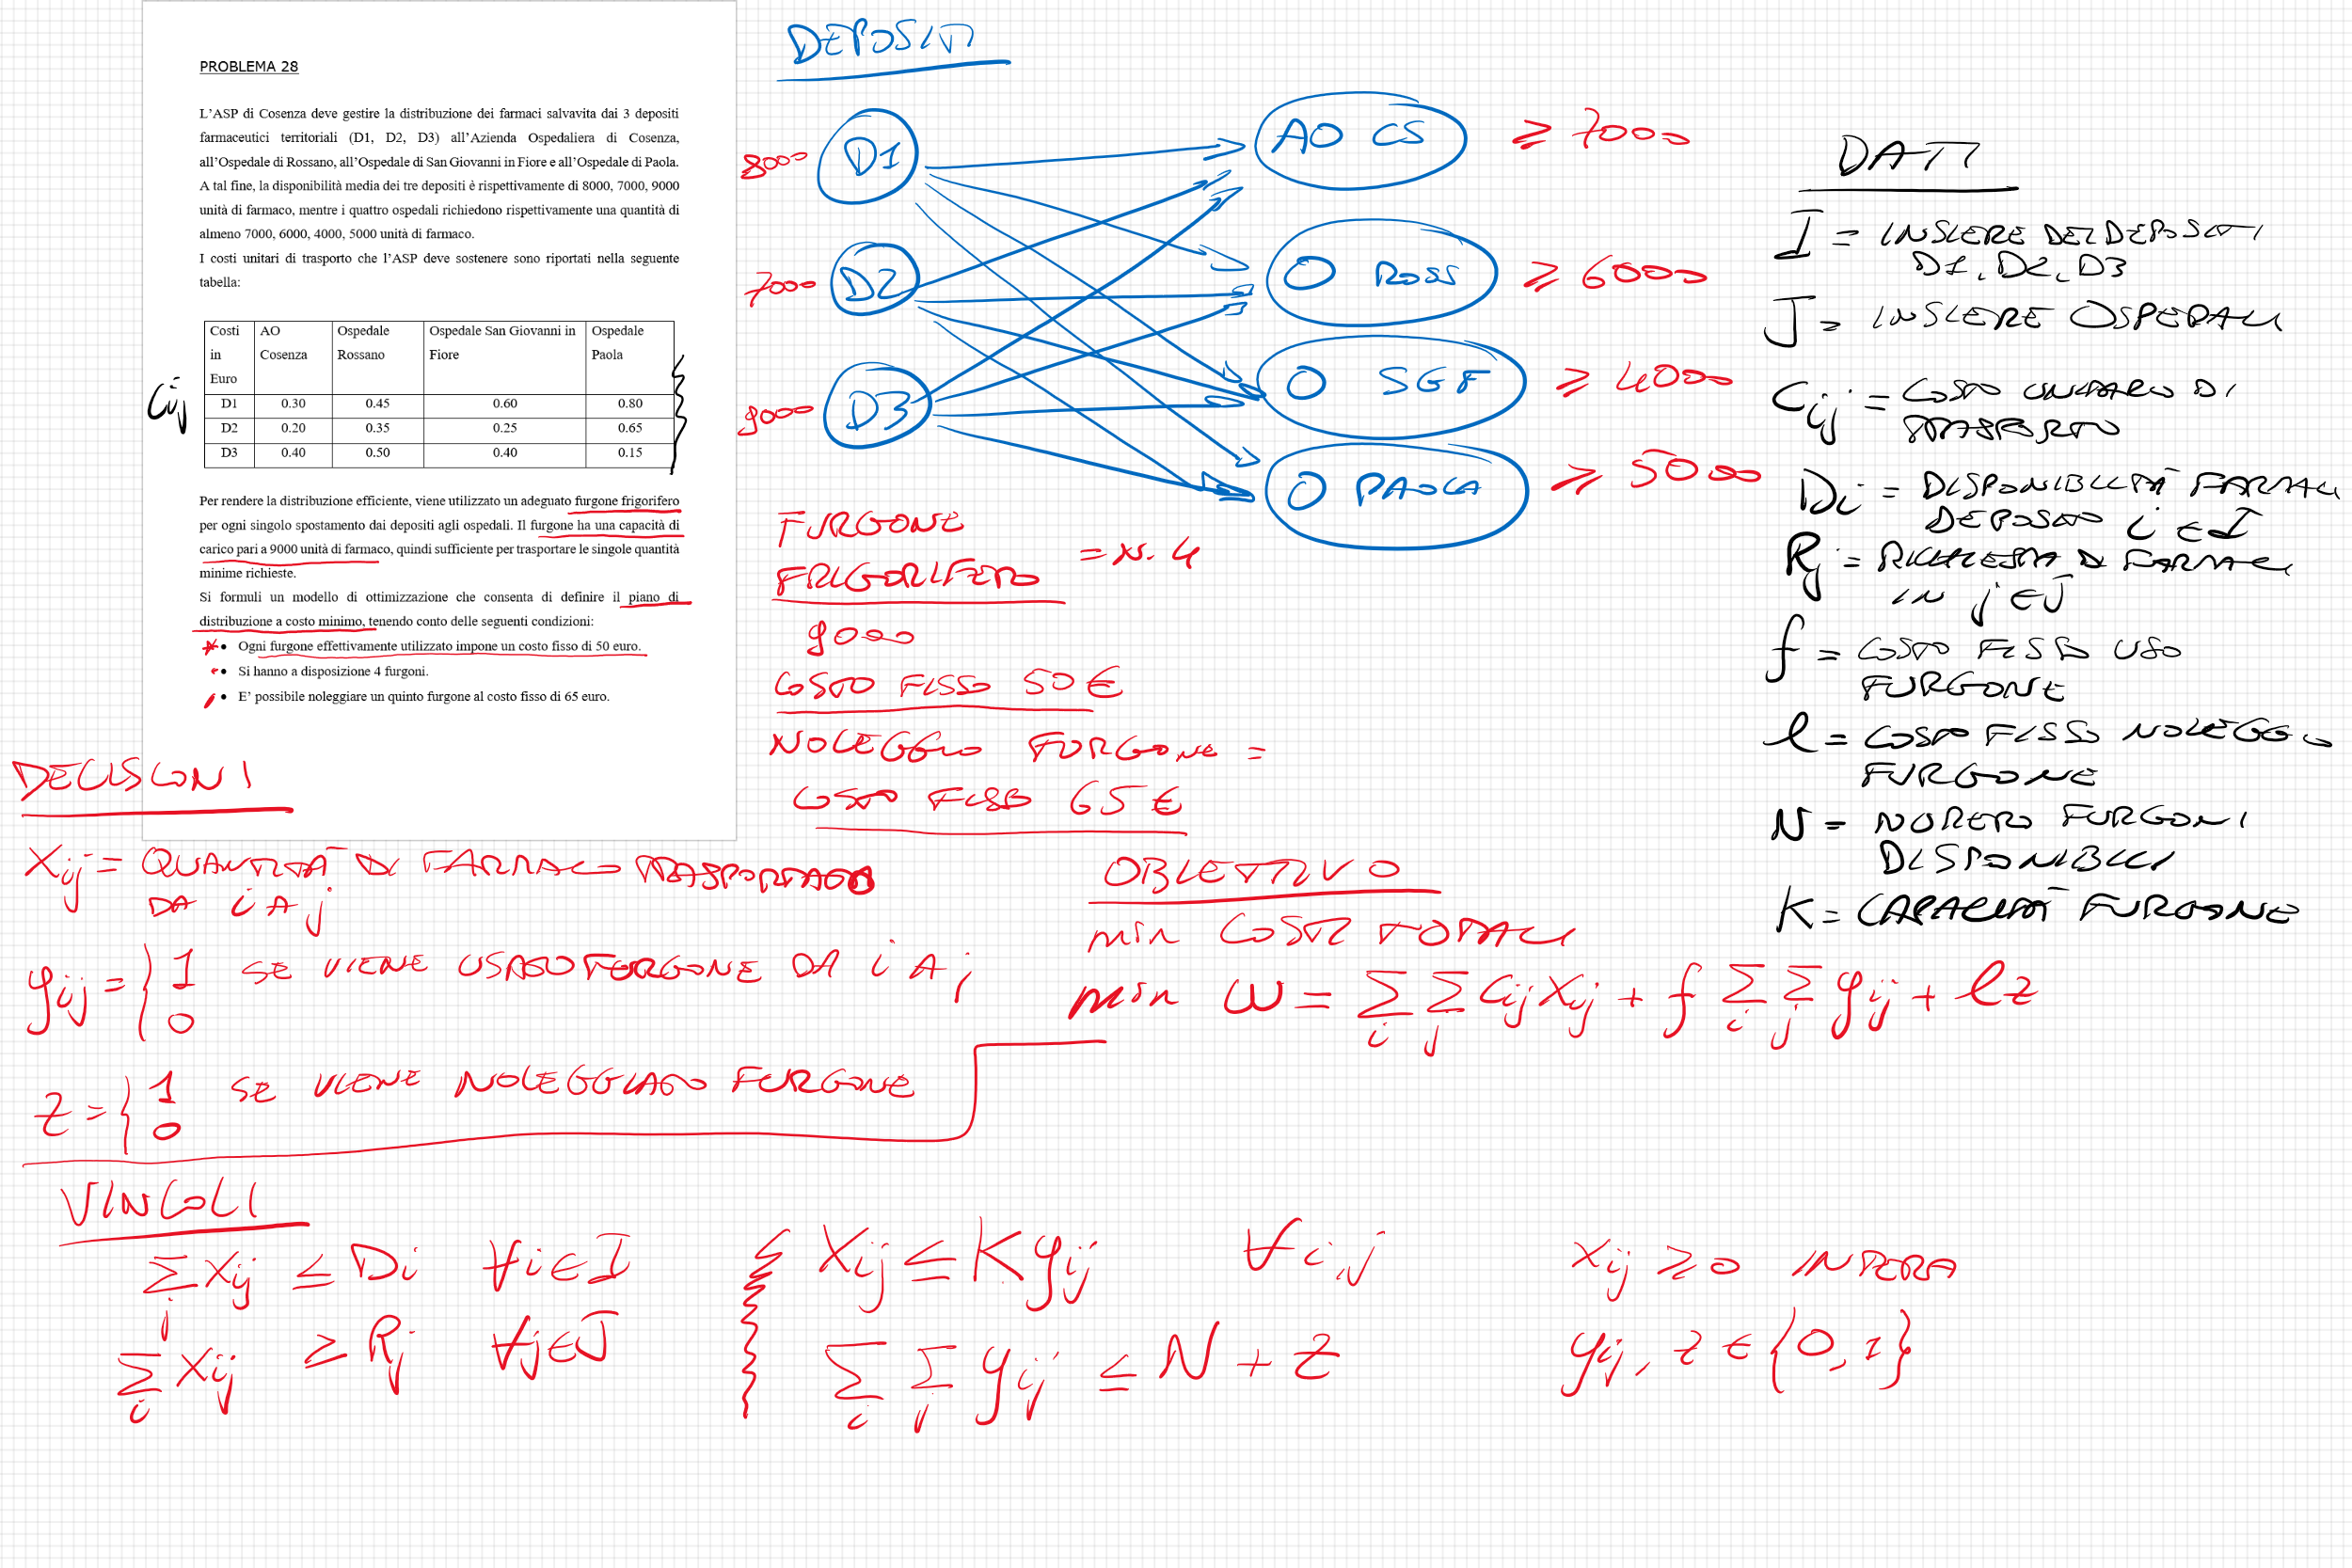 PROBLEMA 28
L'ASP di Cosenza deve gestire la distribuzione dei farmaci salvavita dai 3 depositi
farmaceutici territoriali (D1, D2, D3) all'Azienda Ospedaliera di Cosenza,
all'Ospedale di Rossano, all'Ospedale di San Giovanni in Fiore e all'Ospedale di Paola.
A tal fine, la disponibilità media dei tre depositi è rispettivamente di 8000, 7000, 9000
unità di farmaco, mentre i quattro ospedali richiedono rispettivamente una quantità di
almeno 7000, 6000, 4000, 5000 unità di farmaco.
I costi unitari di trasporto che l'ASP deve sostenere sono riportati nella seguente
tabella:
Cij
Costi in Euro AO Cosenza Ospedale Rossano Ospedale San Giovanni in Fiore Ospedale Paola
D1 0.30 0.45 0.60 0.80
D2 0.20 0.35 0.25 0.65
D3 0.40 0.50 0.40 0.15
Per rendere la distribuzione efficiente, viene utilizzato un adeguato furgone frigorifero
per ogni singolo spostamento dai depositi agli ospedali. Il furgone ha una capacità di
carico pari a 9000 unità di farmaco, quindi sufficiente per trasportare le singole quantità
minime richieste.
Si formuli un modello di ottimizzazione che consenta di definire il piano di
distribuzione a costo minimo, tenendo conto delle seguenti condizioni:
• Ogni furgone effettivamente utilizzato impone un costo fisso di 50 euro.
• Si hanno a disposizione 4 furgoni.
• E' possibile noleggiare un quinto furgone al costo fisso di 65 euro.
DEPOSITI
8000 D1 AO CS ≥ 7000
7000 D2 O ROSS ≥ 6000
9000 D3 O SGF ≥ 4000
O PAOLA ≥ 5000
FURGONE
FRIGORIFERO = N. 4
9000
COSTO FISSO 50 €
NOLEGGIO FURGONE =
COSTO FISSO 65 €
DATI
I = INSIEME DEI DEPOSITI
D1, D2, D3
J = INSIEME OSPEDALI
Cij = COSTO UNITARIO DI
TRASPORTO
Di = DISPONIBILITÀ FARMACI
DEPOSITO i ∈ I
Rj = RICHIESTA DI FARMACI
IN j ∈ J
f = COSTO FISSO USO
FURGONE
l = COSTO FISSO NOLEGGIO
FURGONE
N = NUMERO FURGONI
DISPONIBILI
K = CAPACITÀ FURGONE
DECISIONI
Xij = QUANTITÀ DI FARMACO TRASPORTATO
DA i A j
yij = { 1 SE VIENE USATO FURGONE DA i A j
0
z = { 1 SE VIENE NOLEGGIATO FURGONE
0
OBIETTIVO
min COSTI TOTALI
min ω = Σi Σj Cij Xij + f Σi Σj yij + l z
VINCOLI
Σj Xij ≤ Di ∀i∈I
Σi Xij ≥ Rj ∀j∈J
Xij ≤ K yij ∀i,j
Σi Σj yij ≤ N + z
Xij ≥ 0 INTERA
yij, z ∈ {0,1}